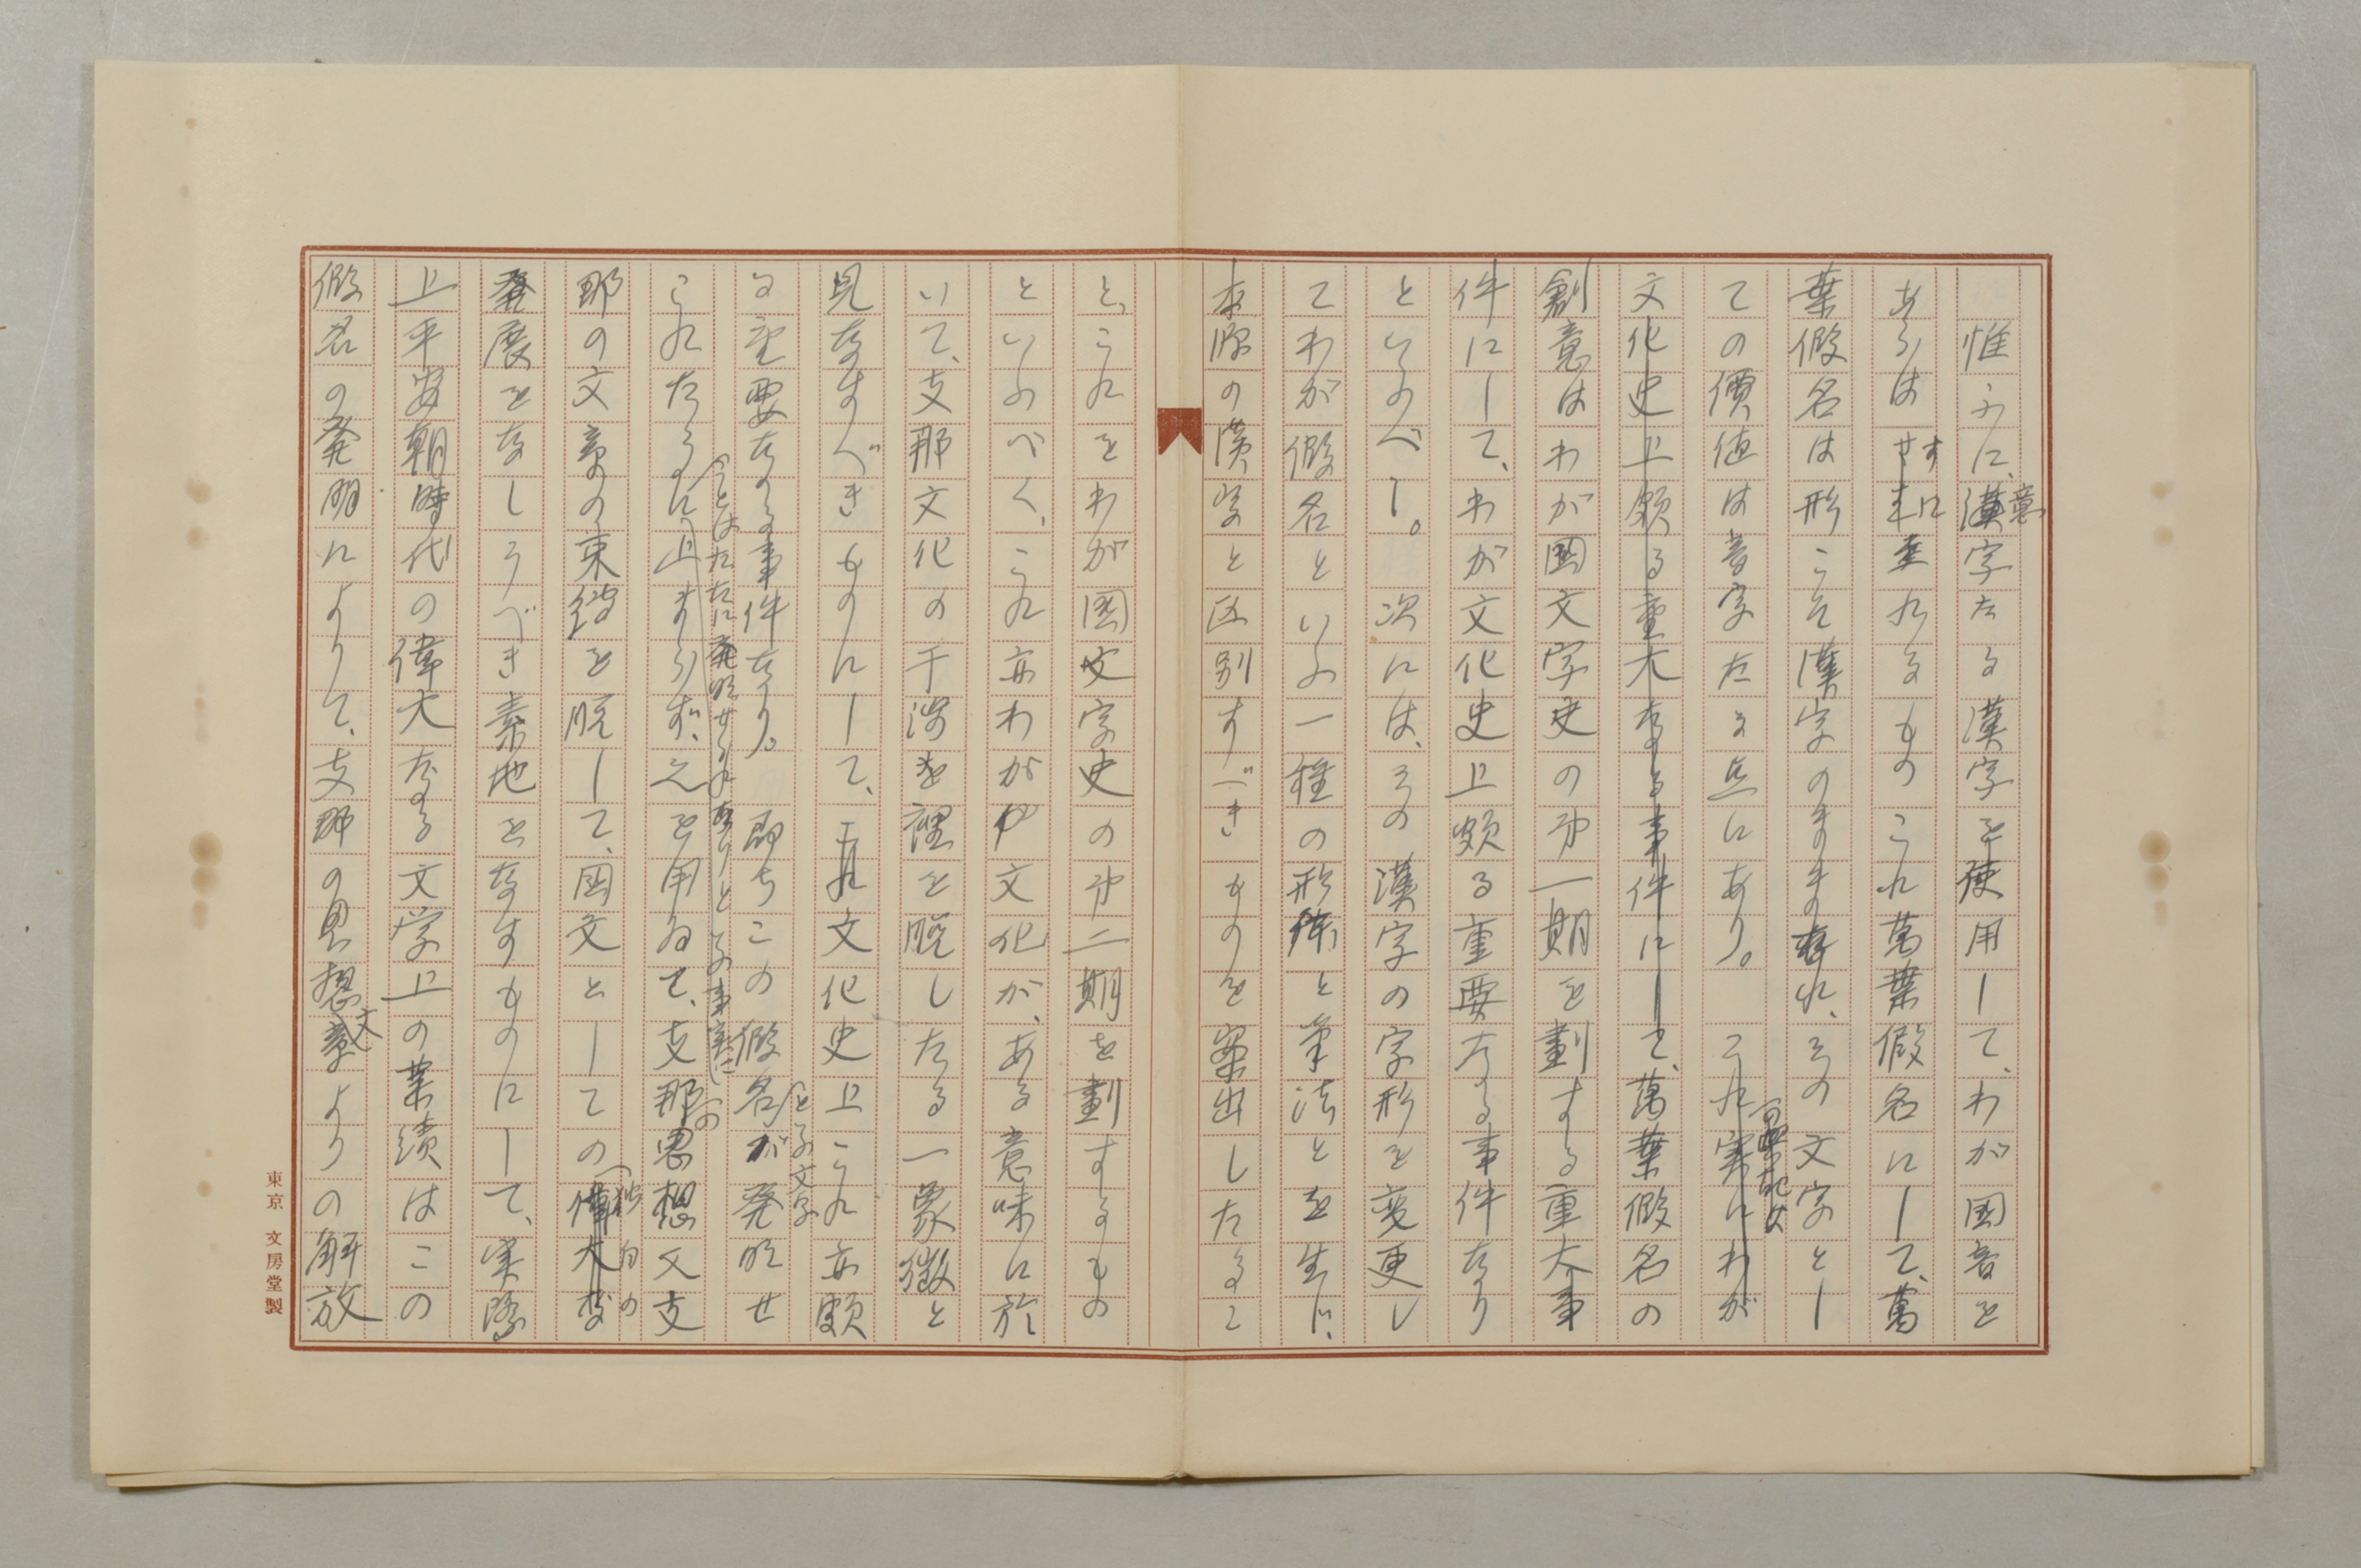 惟ふに、意字たる漢字を使用して、わが国音を
あらはすに至れるものこれ萬葉假名にして、萬
葉假名は形こそ漢字のまゝなれ、その文字とし
ての價値は音字たる点にあり。これ実にわが
文化史上頗る重大なる事件にして、萬葉假名の
創意はわが国文字史の第一期を劃する重大事
件にして、わが文化史上頗る重要なる事件なり
といふべし。次には、その漢字の字形を変更し
てわが假名といふ一種の形体と筆法とを生じ、
本源の漢字と区別すべきものを案出したるこ
と、これをわが国文字史の第二期を劃するもの
といふべく、これ亦わが文化が、ある意味に於
いて、支那文化の干渉を裡を脱したる一象徴と
見なすべきものにして、文化史上これ亦頗
る重要なる事件なり。即ちこの假名といふ文字が発明せ
られたるは、たゞに発明せられたりといふ事実に
止まらず、之を用ゐて、支那の思想文支
那の文章の束縛を脱して、国文としての独自の
発展をなしうべき素地をなすものにして、実際
上平安朝時代の偉大なる文学上の業績はこの
假名の発明によりて、支那の思想文章よりの解放
東京 文房堂製